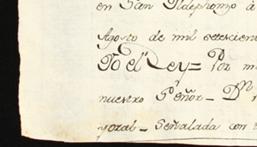 en San Ildephonzo à
Agosto de mil setescient
Yo el Rey = Por m
nuestro Señor _ Dn
yoral _ Señalada con